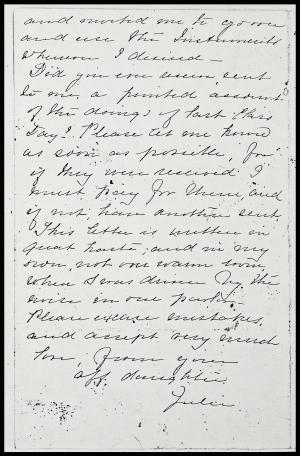 and invited me to go over
and use the Instruments
whenever I desired –
Did you ever receive, sent
to me, a printed account
of the doings of last Class
Day? Please let me know
as soon as possible, for
if they were received I
must pay for them, and
if not, have another sent.
This letter is written in
great haste, and in my
own, not over warm room
where I was driven by the
noise in our parlor.
Please excuse mistakes,
and accept very much
love, from your
aff. daughter
Julia